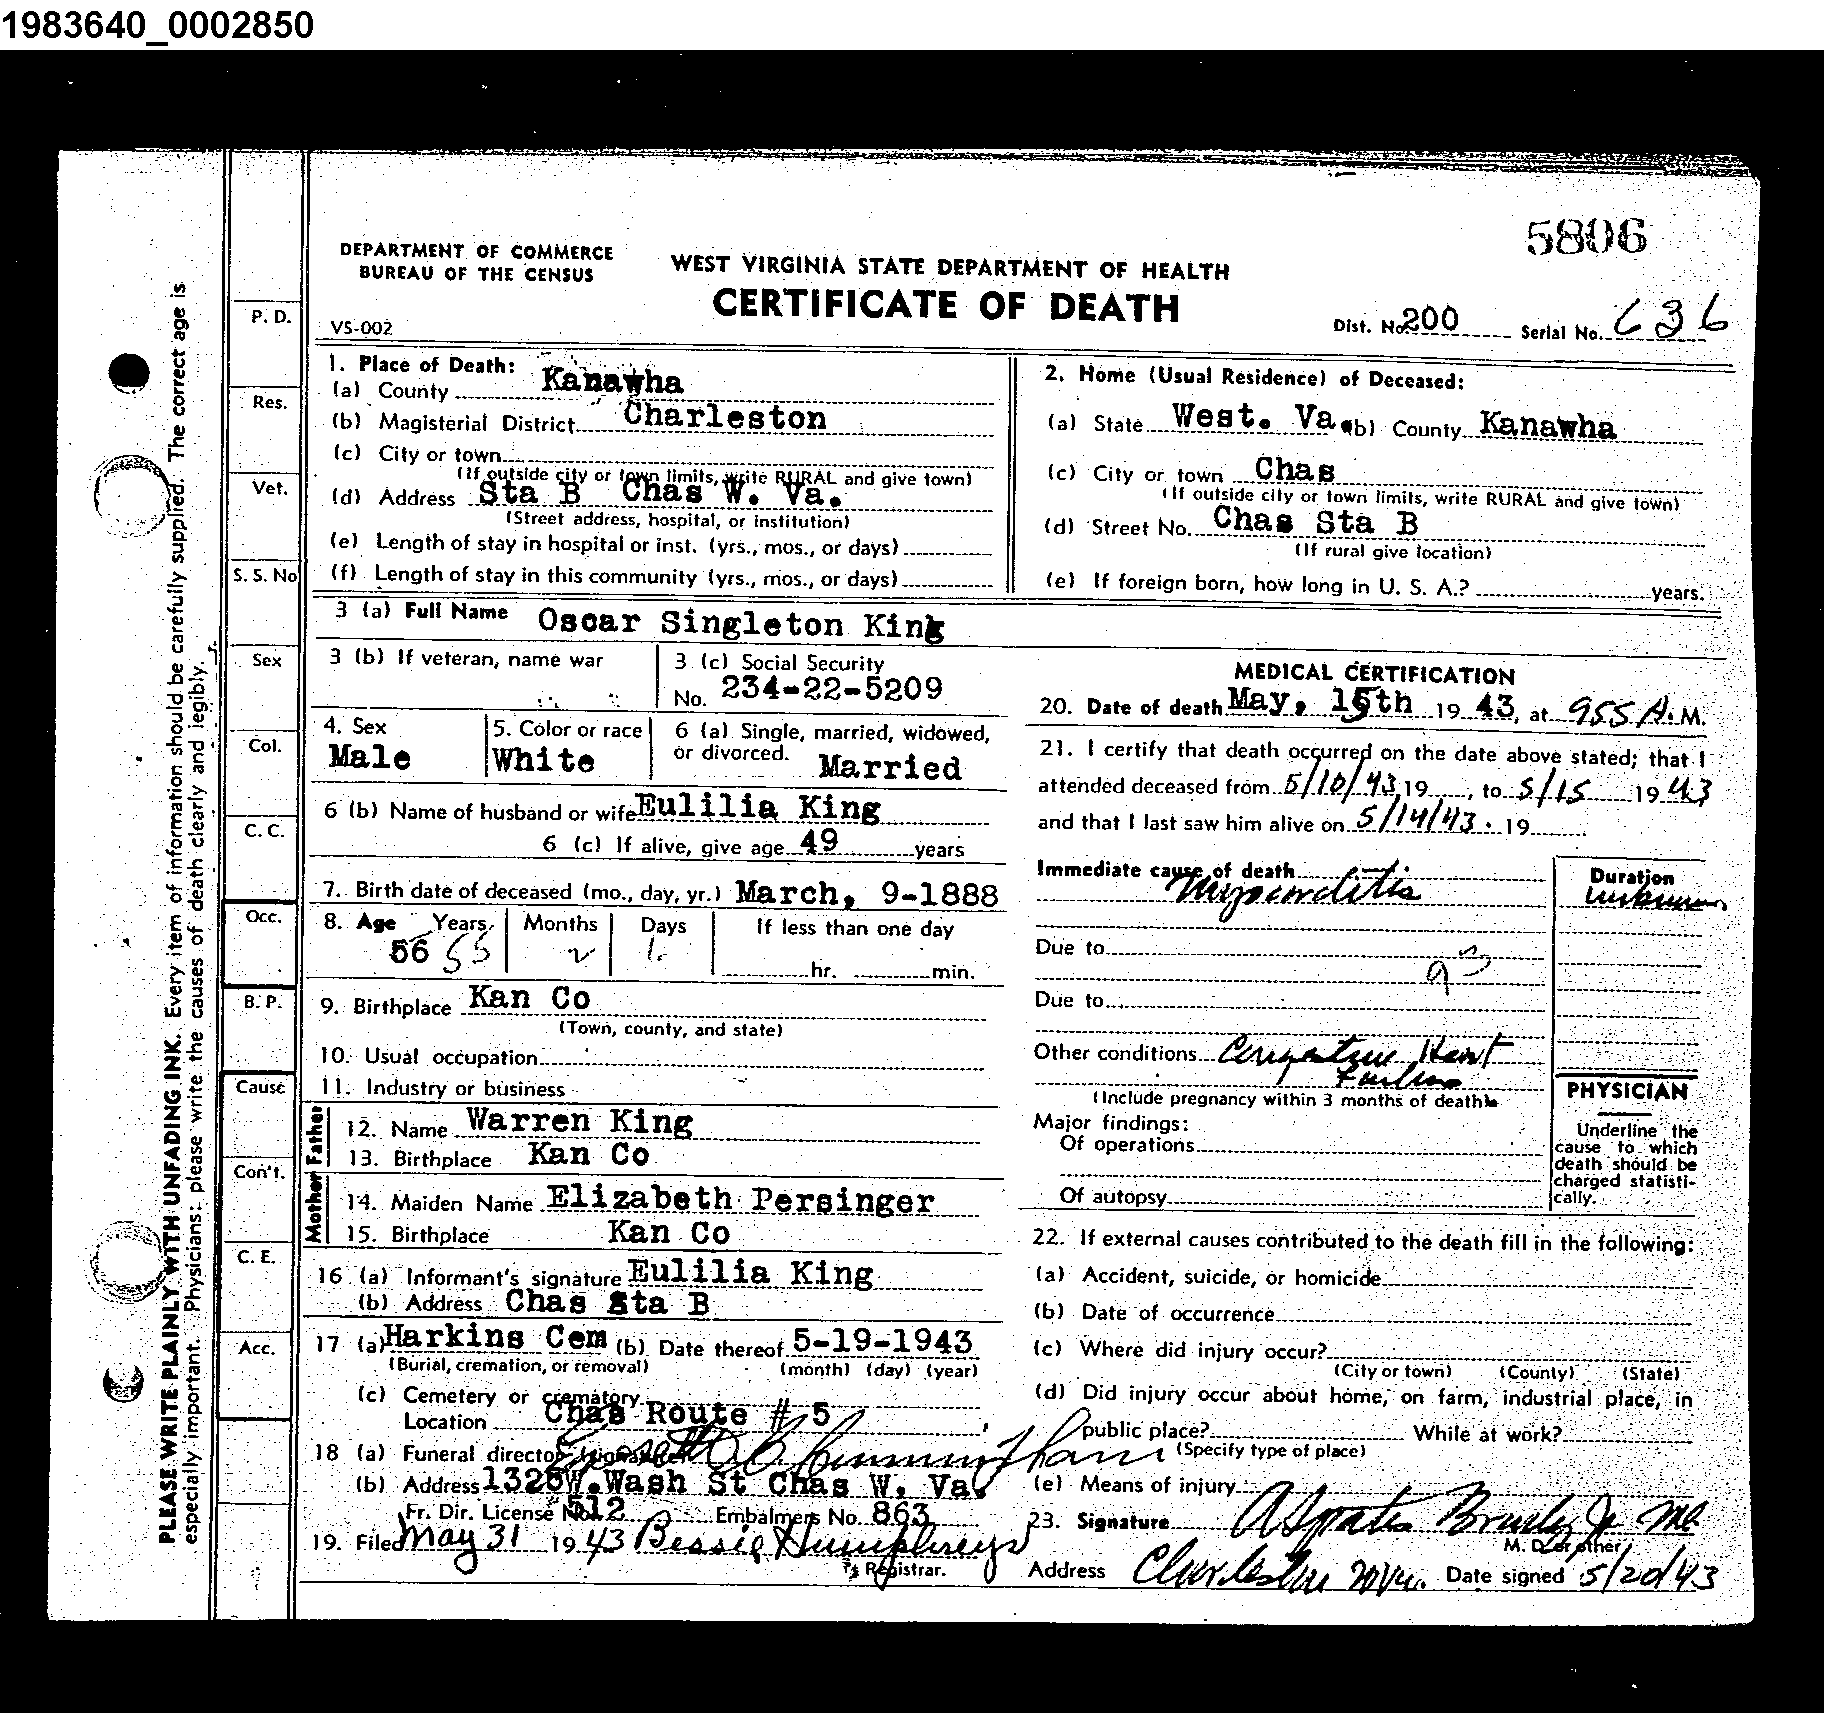 1983640_0002850
5806
DEPARTMENT OF COMMERCE
BUREAU OF THE CENSUS
WEST VIRGINIA STATE DEPARTMENT OF HEALTH
CERTIFICATE OF DEATH
VS-002
Dist. No. 200 Serial No. 636
1. Place of Death:
(a) County Kanawha
(b) Magisterial District Charleston
(c) City or town
(If outside city or town limits, write RURAL and give town)
(d) Address Sta B Chas W. Va.
(Street address, hospital, or institution)
(e) Length of stay in hospital or inst. (yrs., mos., or days)
(f) Length of stay in this community (yrs., mos., or days)
2. Home (Usual Residence) of Deceased:
(a) State West. Va. (b) County Kanawha
(c) City or town Chas
(If outside city or town limits, write RURAL and give town)
(d) Street No. Chas Sta B
(If rural give location)
(e) If foreign born, how long in U. S. A.? years.
3 (a) Full Name Oscar Singleton King
3 (b) If veteran, name war
3 (c) Social Security
No. 234-22-5209
4. Sex
Male
5. Color or race
White
6 (a) Single, married, widowed,
or divorced. Married
6 (b) Name of husband or wife Eulilia King
6 (c) If alive, give age 49 years
7. Birth date of deceased (mo., day, yr.) March, 9-1888
8. Age Years Months Days If less than one day
56 55 2 6 hr. min.
9. Birthplace Kan Co
(Town, county, and state)
10. Usual occupation
11. Industry or business
Father
12. Name Warren King
13. Birthplace Kan Co
Mother
14. Maiden Name Elizabeth Persinger
15. Birthplace Kan Co
16 (a) Informant's signature Eulilia King
(b) Address Chas Sta B
17 (a) Harkins Cem (b) Date thereof 5-19-1943
(Burial, cremation, or removal) (month) (day) (year)
(c) Cemetery or crematory
Location Chas Route # 5
18 (a) Funeral director's signature Cunningham
(b) Address 1328 W. Wash St Chas W. Va.
Fr. Dir. License No. 512 Embalmers No. 863
19. Filed May 31 1943 Bessie Humphreys
Registrar.
MEDICAL CERTIFICATION
20. Date of death May, 15th 1943, at 955 A. M.
21. I certify that death occurred on the date above stated; that I
attended deceased from 5/10/43, 19 , to 5/15 1943
and that I last saw him alive on 5/14/43. 19
Immediate cause of death
Myocarditis
Duration
unknown
Due to
Due to
Other conditions Congestive Heart
Failure
(Include pregnancy within 3 months of death)
Major findings:
Of operations
Of autopsy
PHYSICIAN
Underline the
cause to which
death should be
charged statisti-
cally.
22. If external causes contributed to the death fill in the following:
(a) Accident, suicide, or homicide
(b) Date of occurrence
(c) Where did injury occur?
(City or town) (County) (State)
(d) Did injury occur about home, on farm, industrial place, in
public place? While at work?
(Specify type of place)
(e) Means of injury
23. Signature A Spates Brady Jr MD
M. D. or other
Address Charleston W Va. Date signed 5/20/43
P. D.
Res.
Vet.
S. S. No
Sex
Col.
C. C.
Occ.
B. P.
Cause
Con't.
C. E.
Acc.
PLEASE WRITE PLAINLY, WITH UNFADING INK. Every item of information should be carefully supplied. The correct age is
especially important. Physicians: please write the causes of death clearly and legibly.